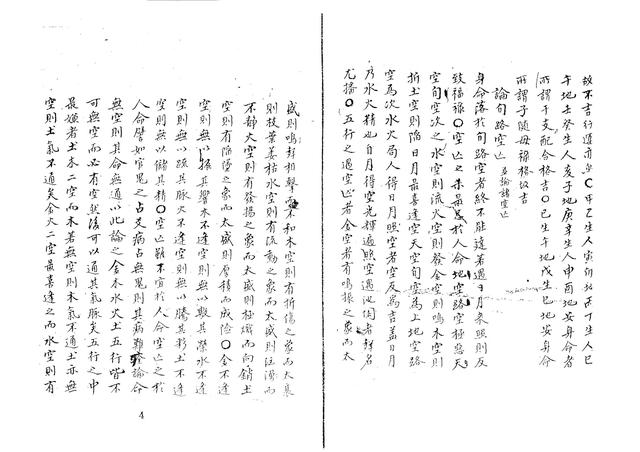 故不吉行運亦忌〇甲乙生人寅卯地丙丁生人巳
午地壬癸生人亥子地庚辛生人申酉地安身命者
所謂干支配合格吉〇己生午地戊生巳地安身命
所謂子隨母祿格极吉
論旬路空亡
身命落於旬路空者終不能達若遇日月來照則反
致福祿〇空亡之杀最忌於人命地空路空極惡天
空旬空次之水空則流火空則發金空則鳴木空則
折土空則陷日月最喜逢空天空旬空為上地空路
空為次水火局人得日月照空者空反為吉盖日月
乃水火精也日月得空光輝遍照空過池固者
尤播〇五行之遇空亡者金空者有鳴振之象而太
盛則鳴聲相擊而不和木空則有折傷之象而太衰
則枝葉萎枯水空則有流動之象而太盛則汪漠而
不靜火空則有發揚之象而太盛則極熾而向銷土
空則有陷墮之象而太盛則厚積而成險〇金不逢
空則無以振其響木不逢空則無以敷其榮水不逢
空則無以疏其脈火不逢空則無以騰其彩土不逢
空則無以儲其精〇空亡雖不宜於人命空亡之於
人命譬如官鬼之占爻病占無鬼則其病難論命
無空則其命無通以此論之金木水火土五行皆不
可無空而必有空然後可以通其氣脈矣五行之中
最嫌者土木二空而木若無空則木氣不通土亦無
空則土氣不通矣金火二空最喜逢之而水空則有
4